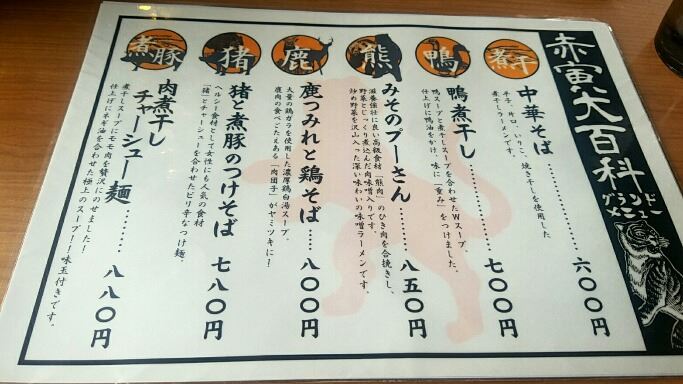 赤寅大百科
グランド
メニュー
煮干
中華そば……六〇〇円
平子、片口、いりこ、焼き干しを使用した
煮干しラーメンです。
鴨
鴨煮干し……七〇〇円
鴨スープと煮干しスープを合わせたWスープ。
仕上げに鴨油をかけ、味に「重み」をつけました。
熊
みそのプーさん……八五〇円
滋養強壮に良い高級食材「熊肉」のひき肉を合挽きし、
野菜とじっくり煮込んだ肉味噌入りです。
炒め野菜を沢山入った深い味わいの味噌ラーメンです。
鹿
鹿つみれと鶏そば……八〇〇円
大量の鶏ガラを使用した濃厚鶏白湯スープ。
鹿肉の食べごたえある「肉団子」がヤミツキに!
猪
猪と煮豚のつけそば 七八〇円
ヘルシー食材として女性にも人気の食材
「猪」とチャーシューを合わせたピリ辛なつけ麺。
煮豚
肉煮干し
チャーシュー麺……八八〇円
煮干しスープにモモ肉を贅沢にのせました!
仕上げにネギ油を合わせた極上のスープ!!味玉付きです。